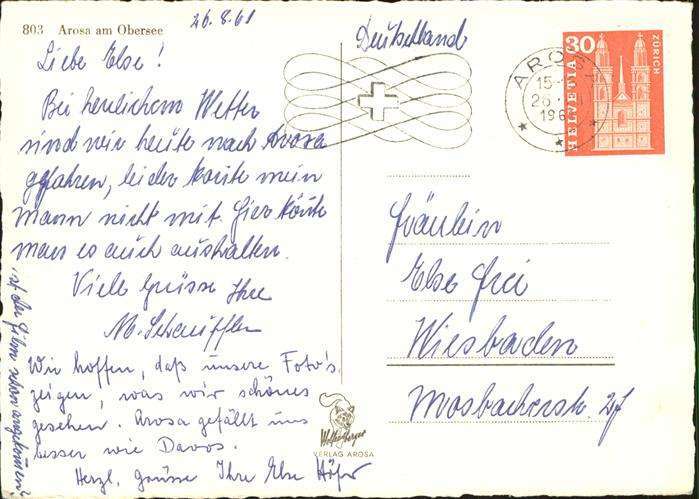 803 Arosa am Obersee
26.8.61
Liebe Else!
Bei herrlichem Wetter
sind wir heute nach Arosa
gefahren, leider konte mein
Mann nicht mit. Hier könte
man es auch aushalten.
Viele Grüsse Ihre
M. Scheuffler
Wir hoffen, daß unsere Foto's
zeigen, was wir schönes
gesehen. Arosa gefällt uns
besser wie Davos.
Herzl. Grüsse Ihre Else
ist der Film schon angekommen?
Deutschland
AROSA
15-
26
196
HELVETIA 30
ZÜRICH
Fräulein
Else Frei
Wiesbaden
Mosbacherstr.
VERLAG AROSA